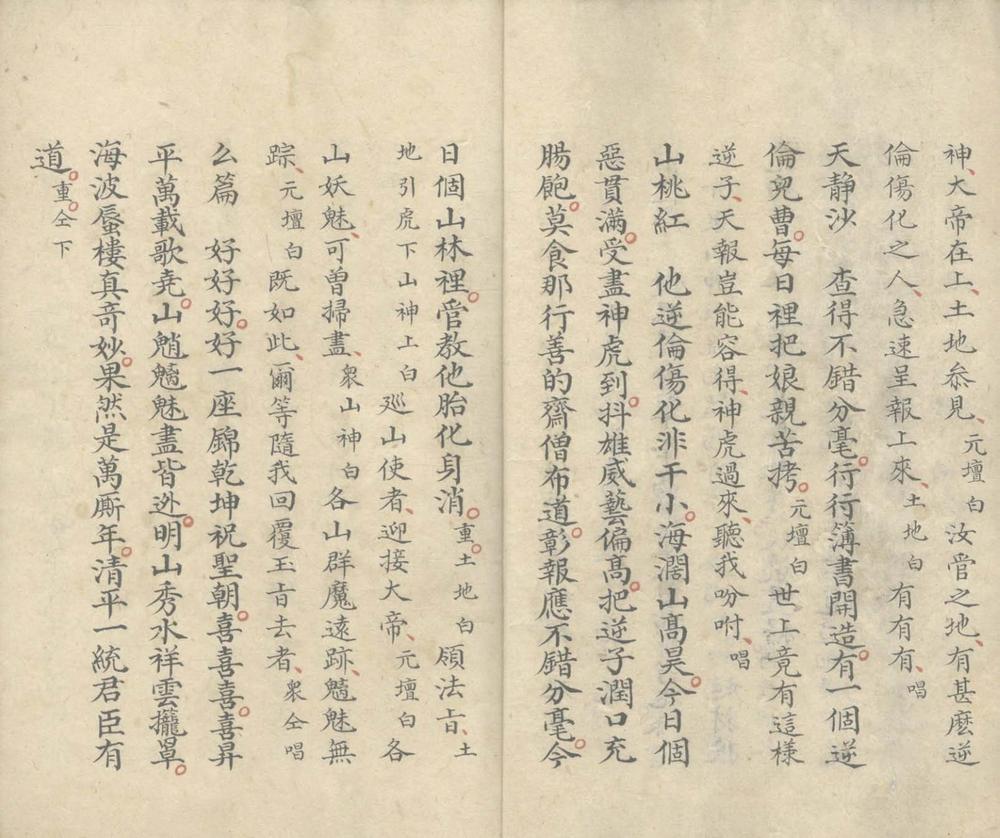 神、大帝在上、土地叅見、元壇白汝管之地、有甚麽逆
倫傷化之人、急速呈報上來、土地白有有有、唱
天静沙　查得不錯分毫。行行簿書開造。有一個逆
倫兒曹。每日裡把娘親苦拷。元壇白世上竟有這樣
逆子、天報豈能容得、神虎過來、聽我吩咐、唱
山桃紅　他逆倫傷化非干小。海濶山高昊。今日個
惡貫滿。受盡神虎到。抖雄威藝偏高。把逆子潤口充
腸飽。莫食那行善的齋僧布道。彰報應不錯分毫。今
日個山林裡。管教他胎化身消。重。土地白領法旨、土
地引虎下山神上白廵山使者、迎接大帝、元壇白各
山妖魅、可曾掃盡、衆山神白各山群魔遠跡、魑魅無
踪、元壇白既如此、爾等隨我回覆玉旨去者、衆仝唱
么篇　好好好。好一座錦乾坤祝聖朝。喜喜喜。喜昇
平萬載歌尭。山魈魑魅盡皆迯。明山秀水祥雲攏罩。
海波蜃樓真竒妙。果然是萬厮年。清平一統君臣有
道。重。仝下